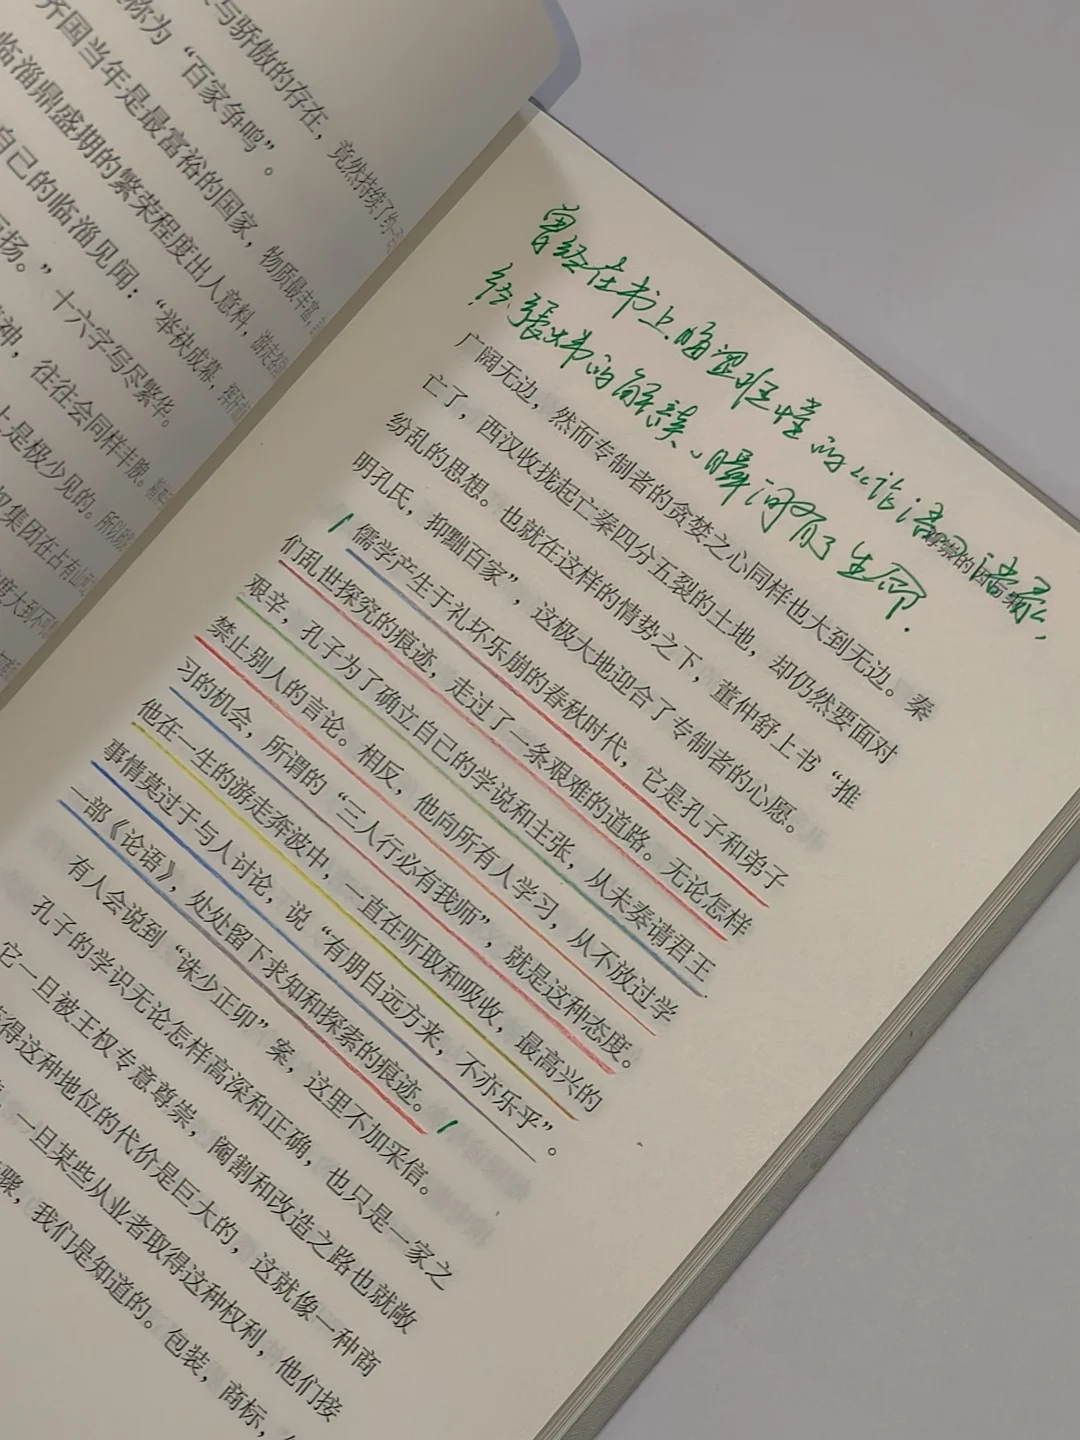 与骄傲的存在，竟然持续了约
称为“百家争鸣”。
齐国当年是最富裕的国家，物质最丰富，
临淄鼎盛期的繁荣程度出人意料，游走
自己的临淄见闻：“举袂成幕，挥汗
扬。”十六字写尽繁华。
神，往往会同样丰腴。
上是极少见的。所以
集团在占有山
度大到不可
曾经在书上
的《论语》
给张炜的解读、瞬间有了生命.
广阔无边，然而专制者的贪婪之心同样也大到无边。秦
亡了，西汉收拢起亡秦四分五裂的土地，却仍然要面对
纷乱的思想。也就在这样的情势之下，董仲舒上书“推
明孔氏，抑黜百家”，这极大地迎合了专制者的心愿。
儒学产生于礼坏乐崩的春秋时代，它是孔子和弟子
们乱世探究的痕迹，走过了一条艰难的道路。无论怎样
艰辛，孔子为了确立自己的学说和主张，从未奏请君王
禁止别人的言论。相反，他向所有人学习，从不放过学
习的机会，所谓的“三人行必有我师”，就是这种态度。
他在一生的游走奔波中，一直在听取和吸收，最高兴的
事情莫过于与人讨论，说“有朋自远方来，不亦乐乎”。
一部《论语》，处处留下求知和探索的痕迹。
有人会说到“诛少正卯”案，这里不加采信。
孔子的学识无论怎样高深和正确，也只是一家之
它一旦被王权专意尊崇，阉割和改造之路也就敞
得这种地位的代价是巨大的，这就像一种商
，一旦某些从业者取得这种权利，他们接
骤，我们是知道的。包装，商标，